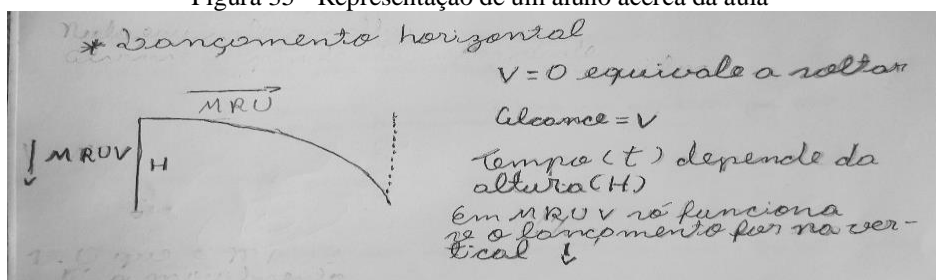 Figura 35 - Representação de um aluno acerca da aula
* Lançamento horizontal
V = 0 equivale a soltar
MRU
Alcance = V
MRUV
H
Tempo (t) depende da
altura (H)
Em MRUV só funciona
se o lançamento for na ver-
tical ↓